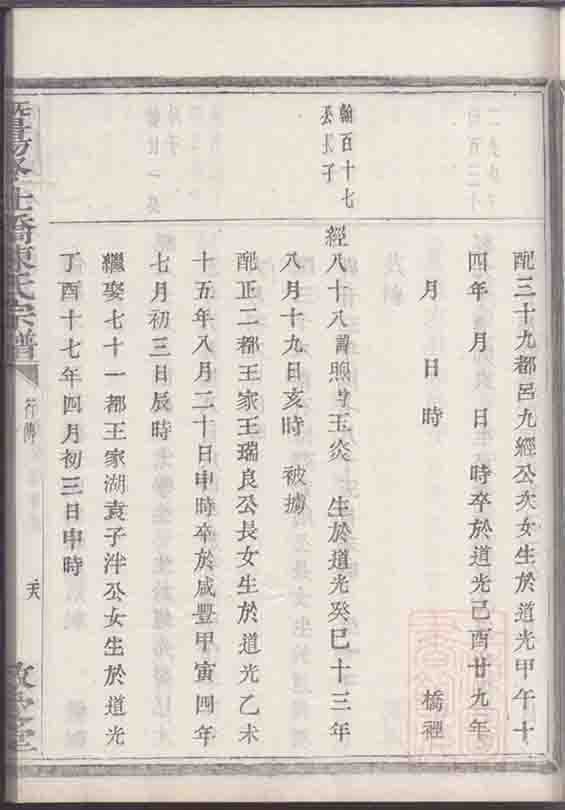 配三十九都呂九經公次女生於道光甲午十
四年 月 日 時卒於道光己酉廿九年
月 日 時 橋裡
翰百十七
公 子
經八十八諱照字玉炎 生於道光癸巳十三年
八月十九日亥時 被擄
配正二都王家王瑞良公長女生於道光乙未
十五年八月二十日申時卒於咸豐甲寅四年
七月初三日辰時
繼娶七十一都王家湖袁子泮公女生於道光
丁酉十七年四月初三日申時
橋陳氏宗譜
行傳